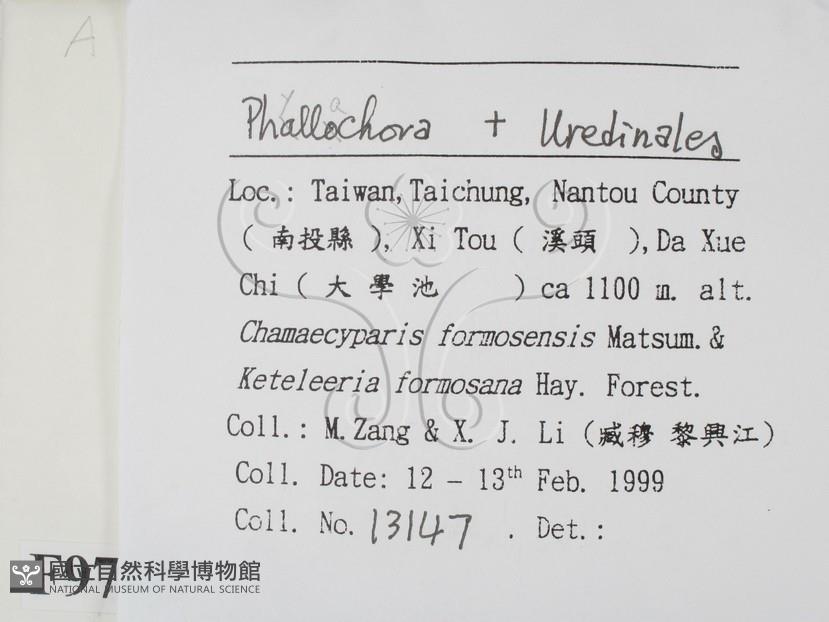 A
y a
Phallochora + Uredinales
Loc.: Taiwan, Taichung, Nantou County
( 南投縣 ), Xi Tou ( 溪頭 ), Da Xue
Chi ( 大學池 ) ca 1100 m. alt.
Chamaecyparis formosensis Matsum. &
Keteleeria formosana Hay. Forest.
Coll.: M. Zang & X. J. Li (臧穆 黎興江)
Coll. Date: 12 - 13th Feb. 1999
Coll. No. 13147 . Det.:
F97
國立自然科學博物館
NATIONAL MUSEUM OF NATURAL SCIENCE